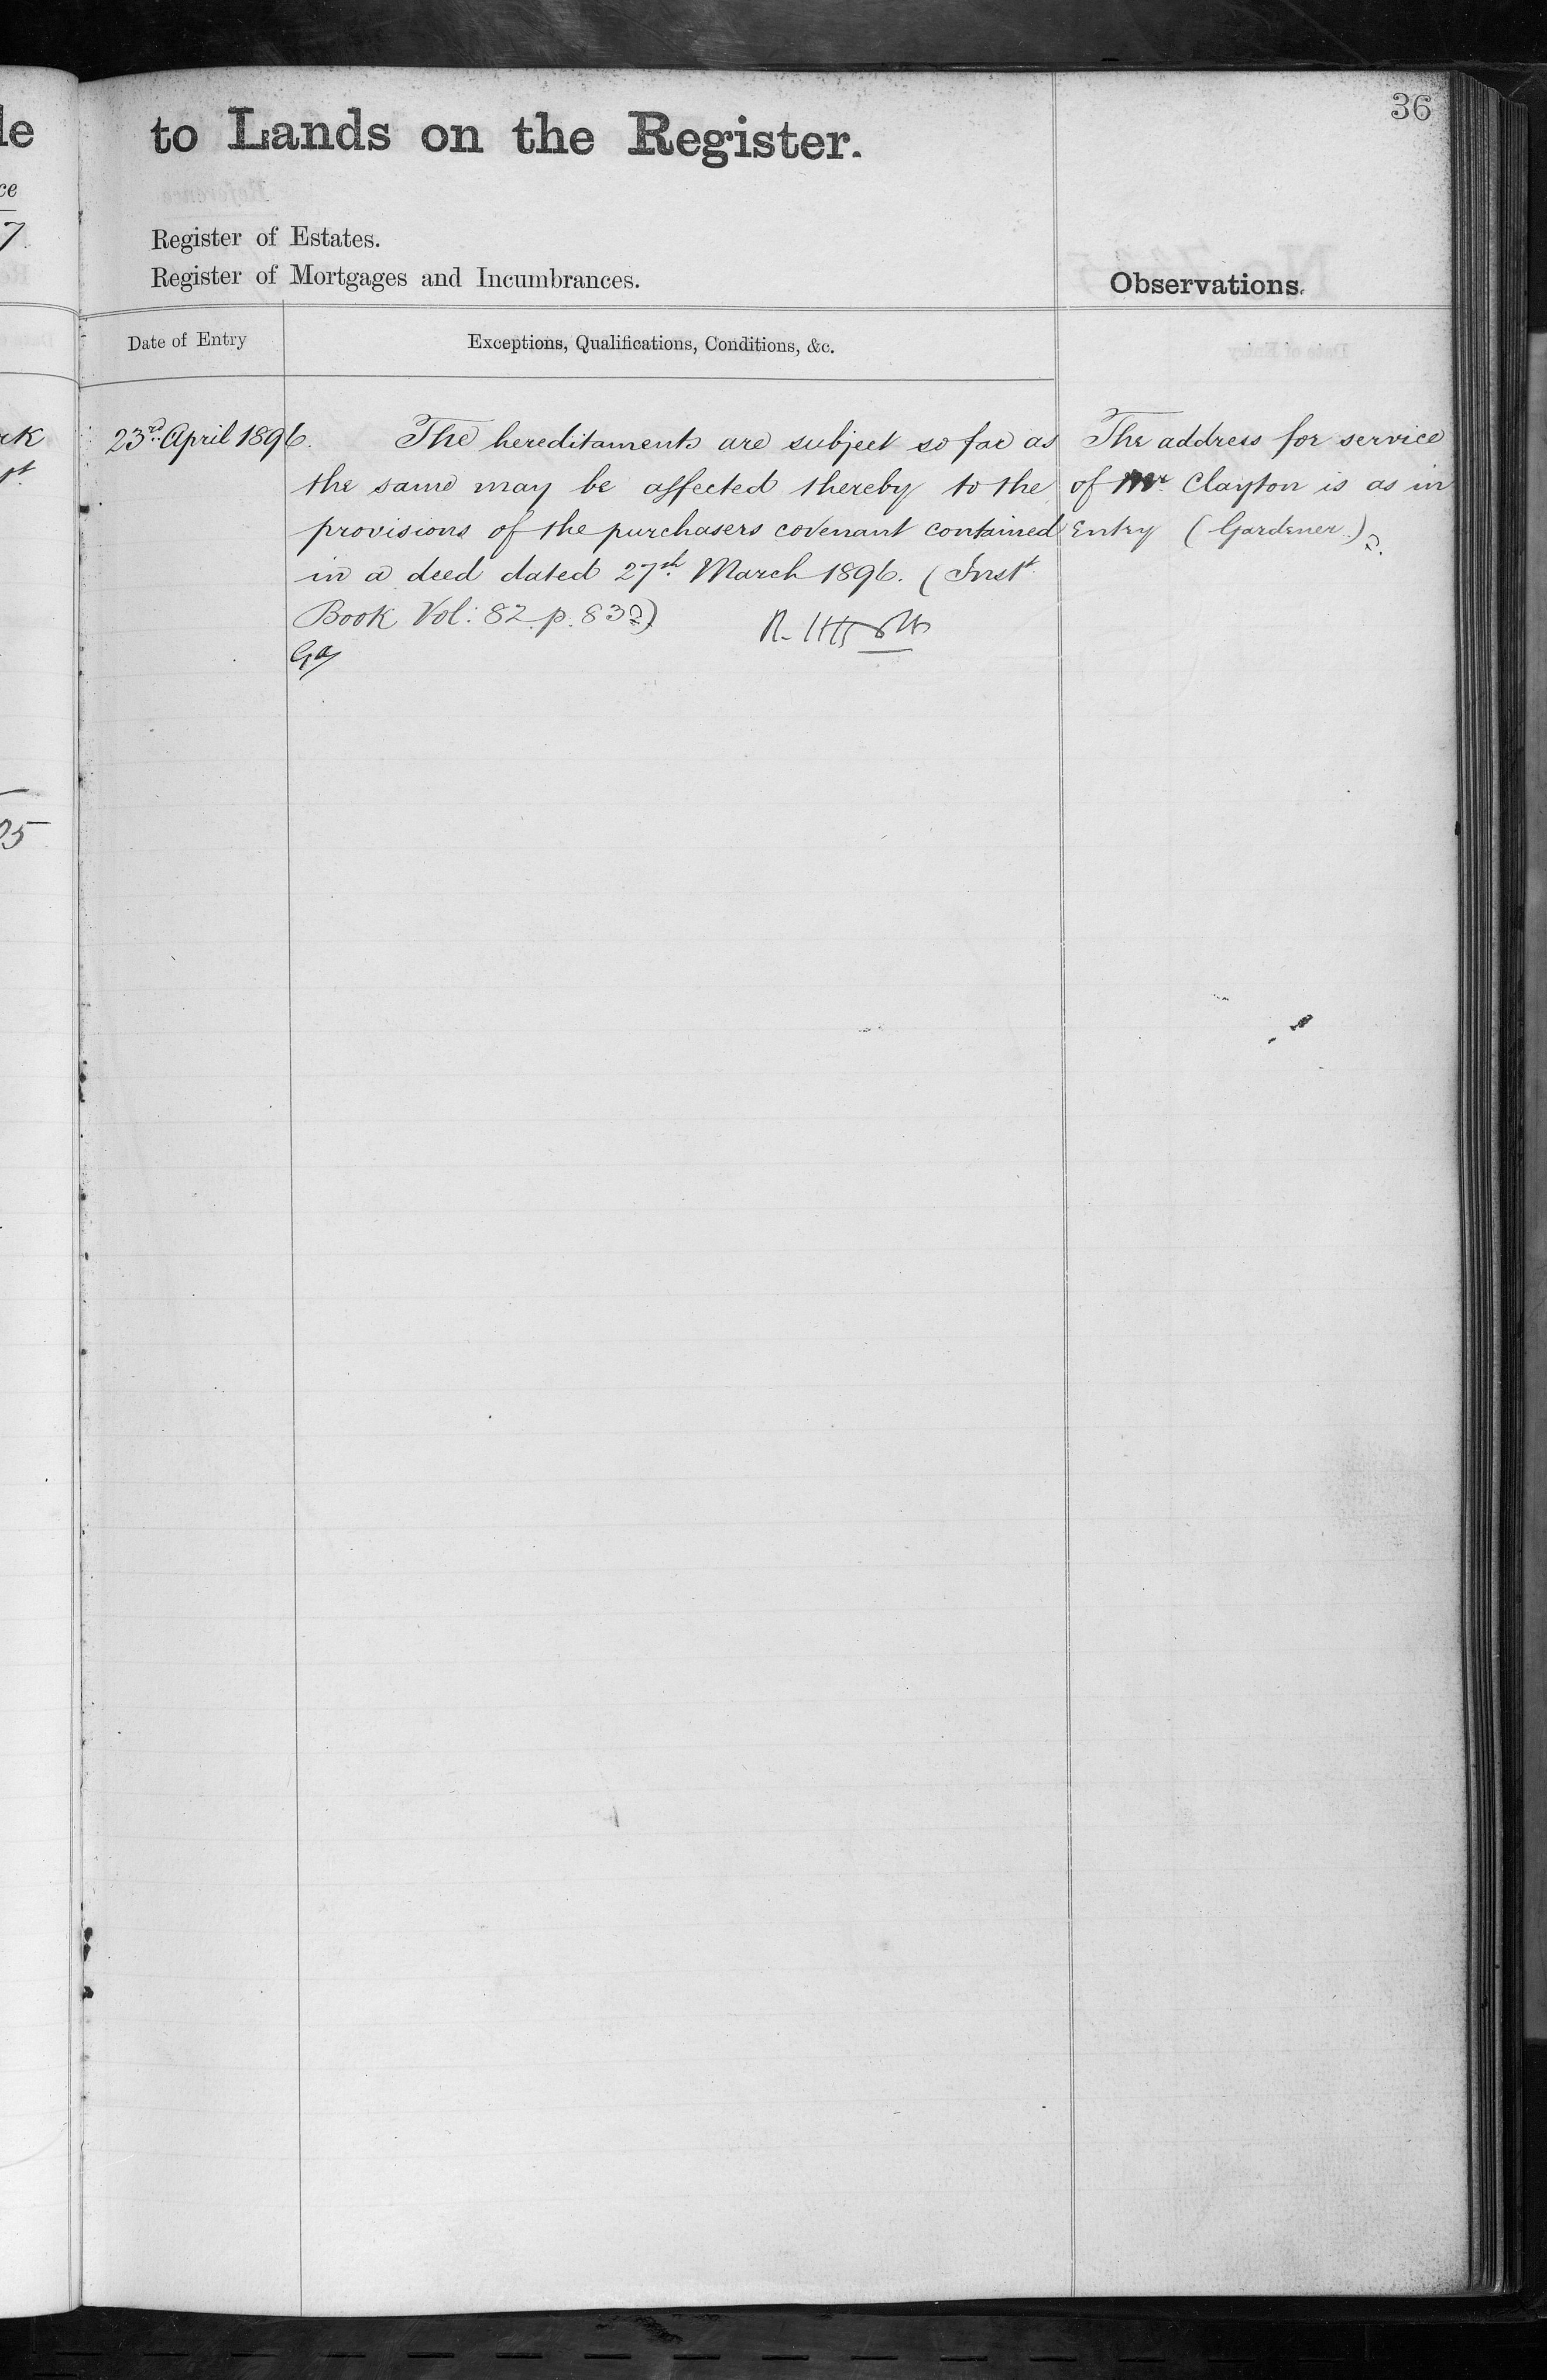 36
to Lands on the Register.
Register of Estates.
Register of Mortgages and Incumbrances.
Observations.
Date of Entry
Exceptions, Qualifications, Conditions, &c.
23rd April 1896.
The hereditaments are subject so far as
the same may be affected thereby to the
provisions of the purchasers covenant contained
in a deed dated 27th March 1896. (Inst.
Book Vol: 82 p. 83)
The address for service
of Mr Clayton is as in
Entry (Gardener)
le
ce
7
rk
25